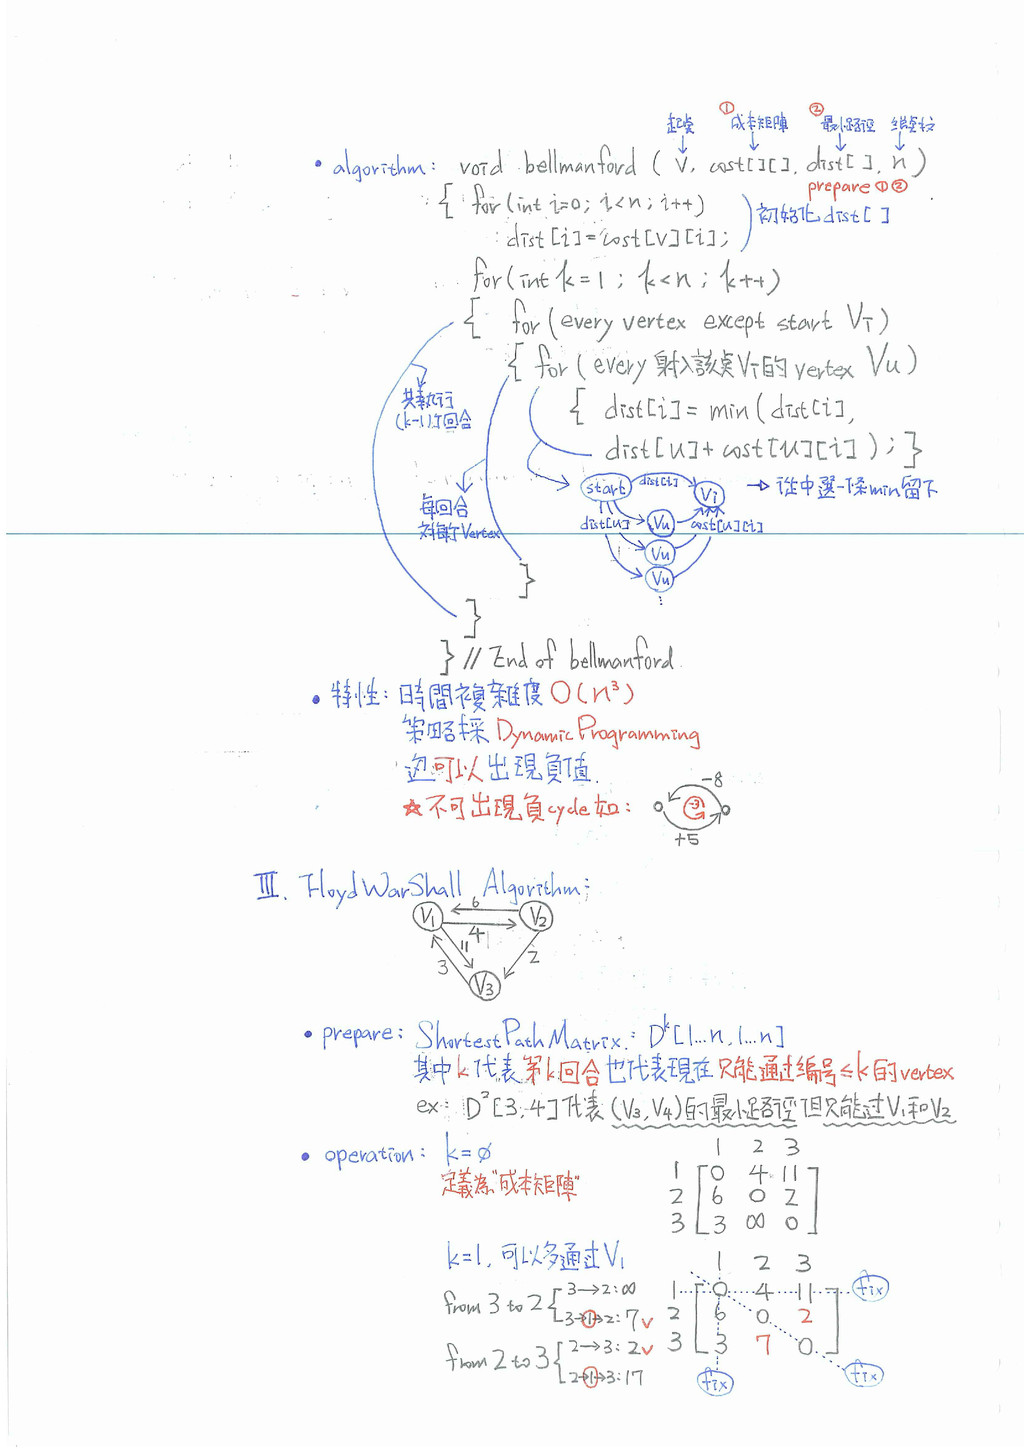 起點 ①成本矩陣 ②最小路徑 總點數
• algorithm: void bellmanford ( v, cost[][], dist[], n )
prepare ① ②
{ for(int i=0; i<n; i++)
dist[i]=cost[v][i];
初始化dist[ ]
for(int k=1 ; k<n ; k++)
{ for(every vertex except start VT)
{ for(every 射入該點VT的 vertex Vu)
{ dist[i]= min(dist[i],
dist[u]+cost[u][i]) ; }
共執行
(k-1)個回合
每回合
對每個Vertex
start dist[i] Vi → 從中選一條min留下
dist[u] Vu cost[u][i]
Vu
Vu
⋮
}
}
} // End of bellmanford.
• 特性: 時間複雜度 O(n³)
策略採 Dynamic Programming
邊可以出現負值.
☆不可出現負cycle如:
-8
-3
+5
III. FloydWarShall Algorithm:
V1 6 V2
4
11
3 2
V3
• prepare: ShortestPathMatrix: Dᵏ[1...n, 1...n]
其中k代表第k回合也代表現在只能通過編号≤k的vertex
ex: D²[3,4]代表(V3,V4)的最小路徑但只能过V1和V2
• operation: k=ø
定義為"成本矩陣"
1 2 3
1 0 4 11
2 6 0 2
3 3 ∞ 0
k=1, 可以多通过V1
from 3 to 2 { 3→2:∞
3→1→2: 7 v
from 2 to 3 { 2→3: 2 v
2→1→3:17
1 2 3
1 0 4 11 fix
2 6 0 2
3 3 7 0
fix fix